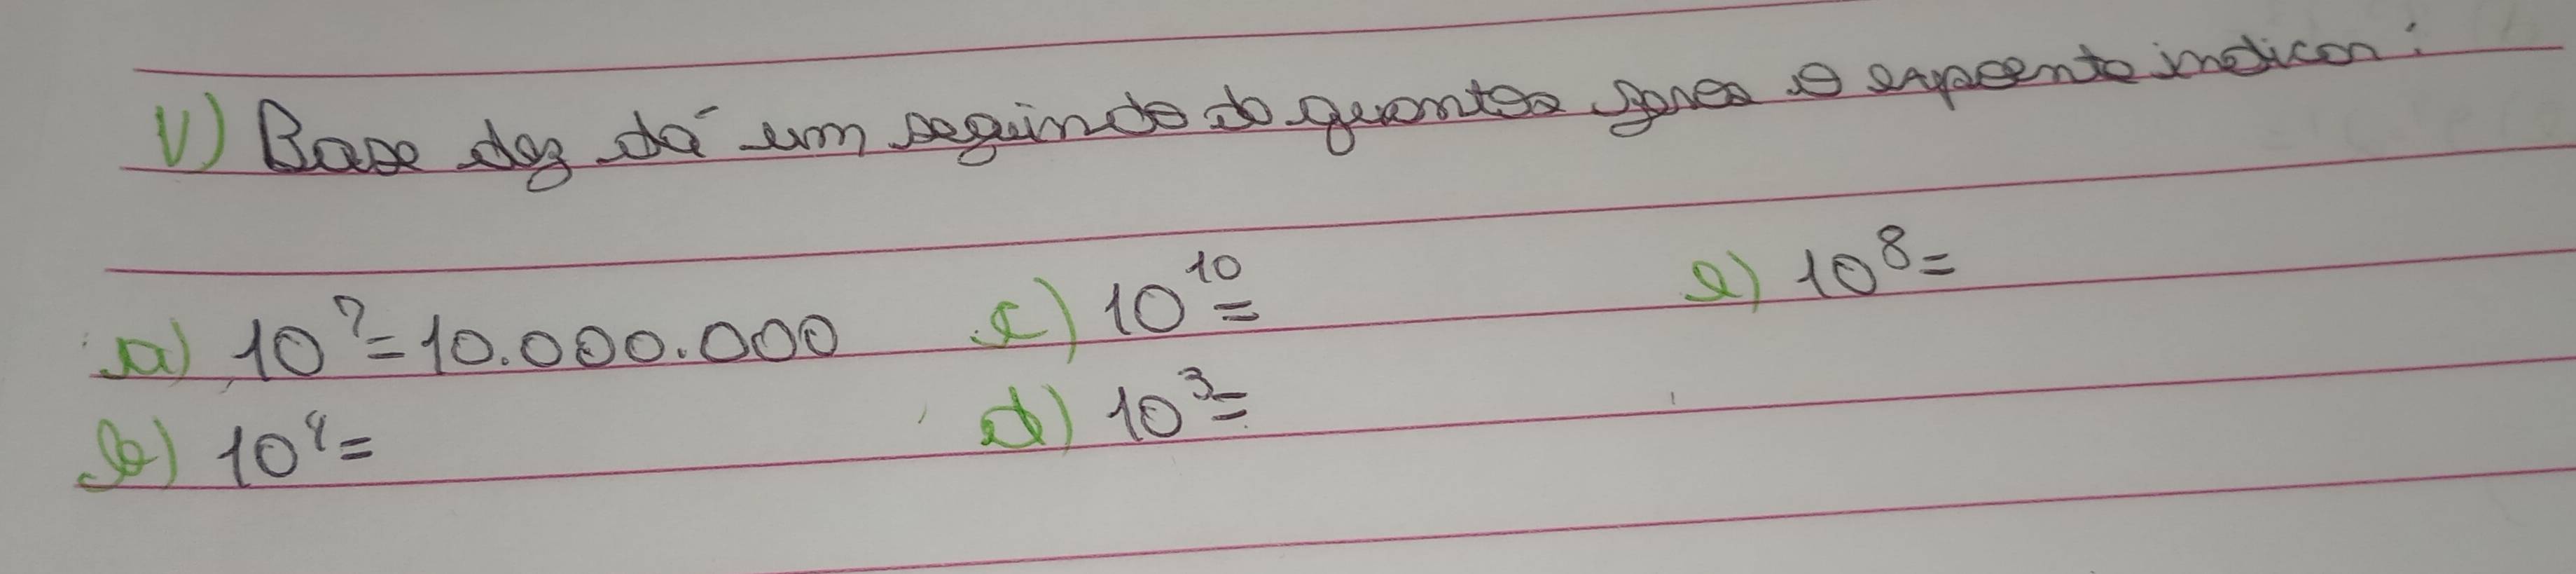 V) Base dez dá um seguindo do quantos zeros o expoente indicar:
a) 10⁷=10.000.000 c) 10¹⁰= e) 10⁸=
b) 10⁴= d) 10³=